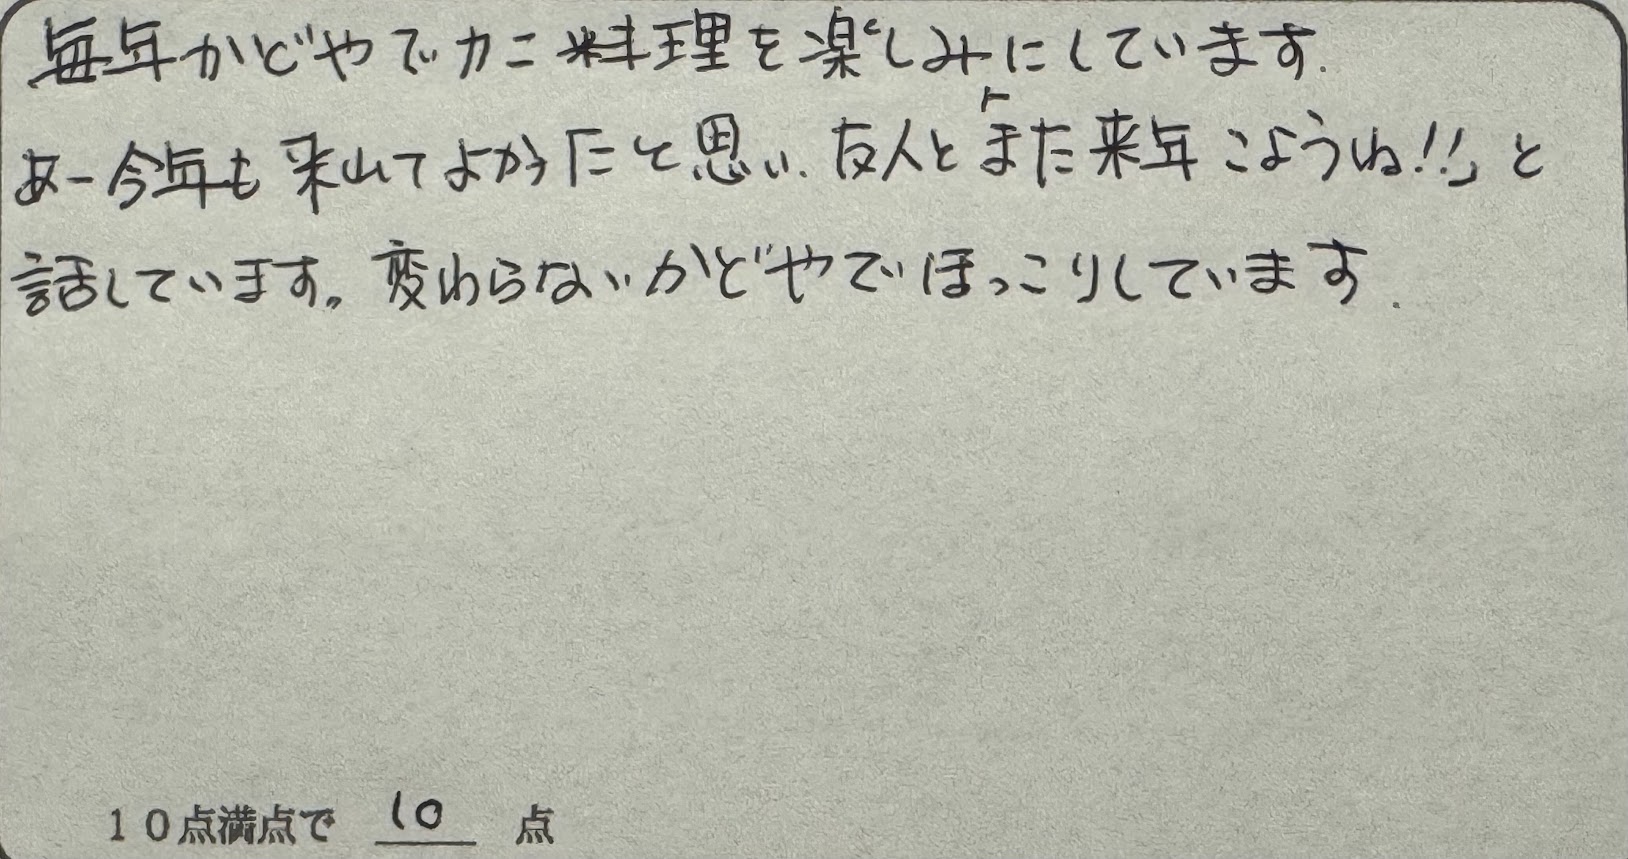 毎年かどやでカニ料理を楽しみにしています.
あー今年も来れてよかったと思い、友人と「また来年こようね!!」と
話しています。変わらないかどやでほっこりしています.
10点満点で 10 点